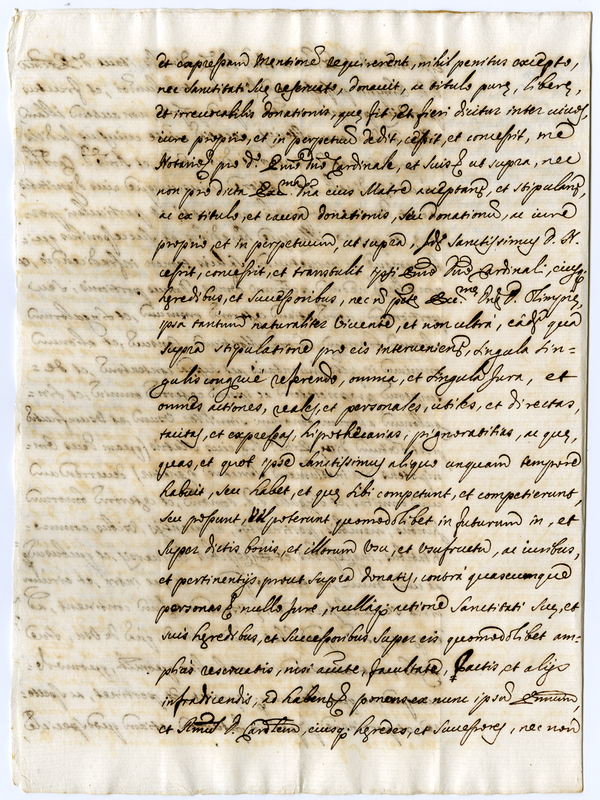 et expressam mentionẽ requirerent, nihil penitus excepto,
nec sanctitati suę reseruato, donauit, ac titulo purę, liberę,
et irreuocabilis donationis, quę fit, et fieri dicitur inter uiuos,
iure proprio, et in perpetuũ dedit, cessit, et concessit, mẽ
Notario pro d. Emõ Dño Cardinale, et suis ut supra, nec
non pro dicta Excma Dña eius Matre acceptanẽ, et stipulanẽ,
ac ex titulo, et causa donationis, seu donationũ, ac iure
proprio, et in perpetuum, ut supra, Sanctissimus D. N.
cessit, concessit, et transtulit ipsi Emõ Dño Cardinali, eiusq;
hęredibus, et successoribus, nec nõ Excmę Dnę D. Olimpię,
ipsa tantum naturaliter viuente, et non ultra, eãdẽ qua
supra stipulatione pro eis interuenienẽ, singula sin-
gulis congruẽ referendo, omnia, et singula Iura, et
omnes actiones, reales, et personales, utiles, et directas,
tacitas, et expressas, hipothecarias, pignoratitias, ac quę,
quas, et quot ipse sanctissimus aliquo unquam tempore
habuit, seu habet, et quę sibi competunt, et competierunt,
seu possunt, uel poterunt quomodolibet in futurum in, et
super dictis bonis, et illorum usu, et usufructu, ac iuribus,
et pertinentijs prout supra donatis, contra quascumque
personas nullo Iure, nullaq; actione Sanctitati Suę, et
suis hęredibus, et successoribus super eis quomodolibet am-
plius reseruatis, nisi facultate, pactis, et alijs
infradicendis, ad habenẽ ponens ex nunc ipsũ Emum,
et Rmũ D. Cardlem, eiusq; hęredes, et successores, nec non